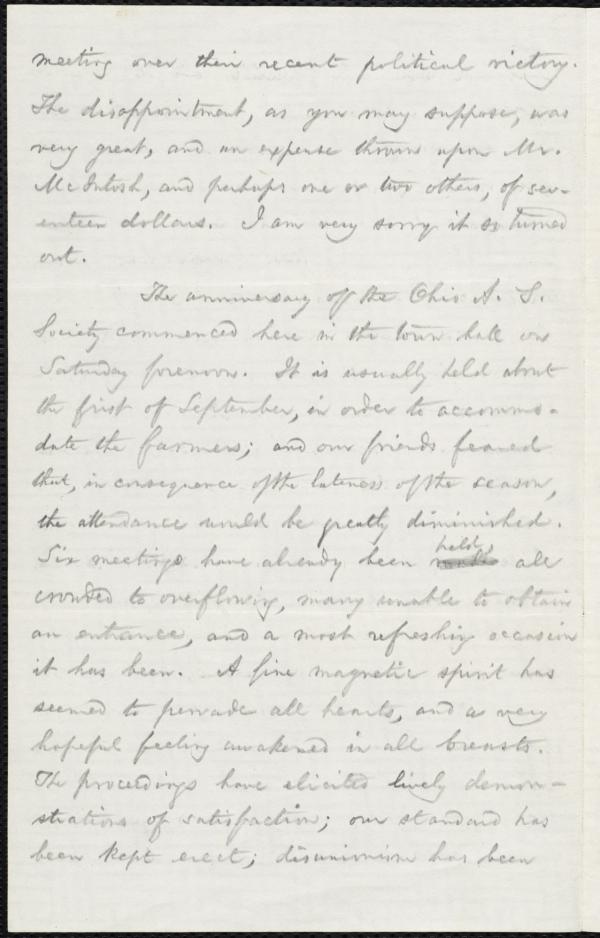 meeting over their recent political victory.
The disappointment, as you may suppose, was
very great, and an expense thrown upon Mr.
McIntosh, and perhaps one or two others, of sev-
enteen dollars. I am very sorry it so turned
out.
The anniversary of the Ohio A. S.
Society commenced here in the town hall on
Saturday forenoon. It is usually held about
the first of September, in order to accommo-
date the farmers; and our friends feared
that, in consequence of the lateness of the season,
the attendance would be greatly diminished.
Six meetings have already been held, all
crowded to overflowing, many unable to obtain
an entrance, and a most refreshing occasion
it has been. A fine magnetic spirit has
seemed to pervade all hearts, and a very
hopeful feeling awakened in all breasts.
The proceedings have elicited lively demon-
strations of satisfaction; our standard has
been kept erect; disunionism has been